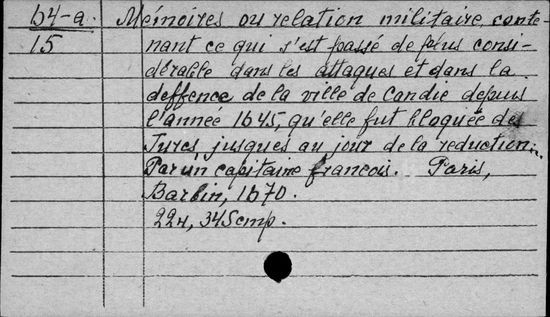 b4-a. Mémoires ou relation militaire, conte-
15 nant ce qui s'est passé de plus consi-
dérable dans les attaques et dans la
deffence de la ville de Candie depuis
l'année 1645, qu'elle fut bloquée des
Turcs jusques au jour de la reduction...
Par un capitaine francois. Paris,
Barbin, 1670.
22н, 345 стр.